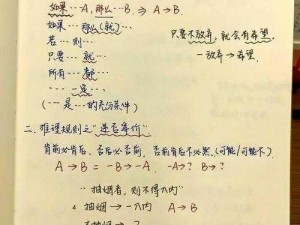 如果…A，那么…B. ⇒ A→B.
如果…那么(就)…
若…则…
只要…就…
只要不放弃，就会有希望.
-放弃→希望.
所有…都…
…一定…
(一是…的充分条件)
二、推理规则之"逆否等价"
肯前必肯后，否后必否前，否前肯后不必然.(可能/可能不).
A→B = -B→-A. -A→? B→?
"抽烟者，则不得入内"
抽烟→-入内 A→B